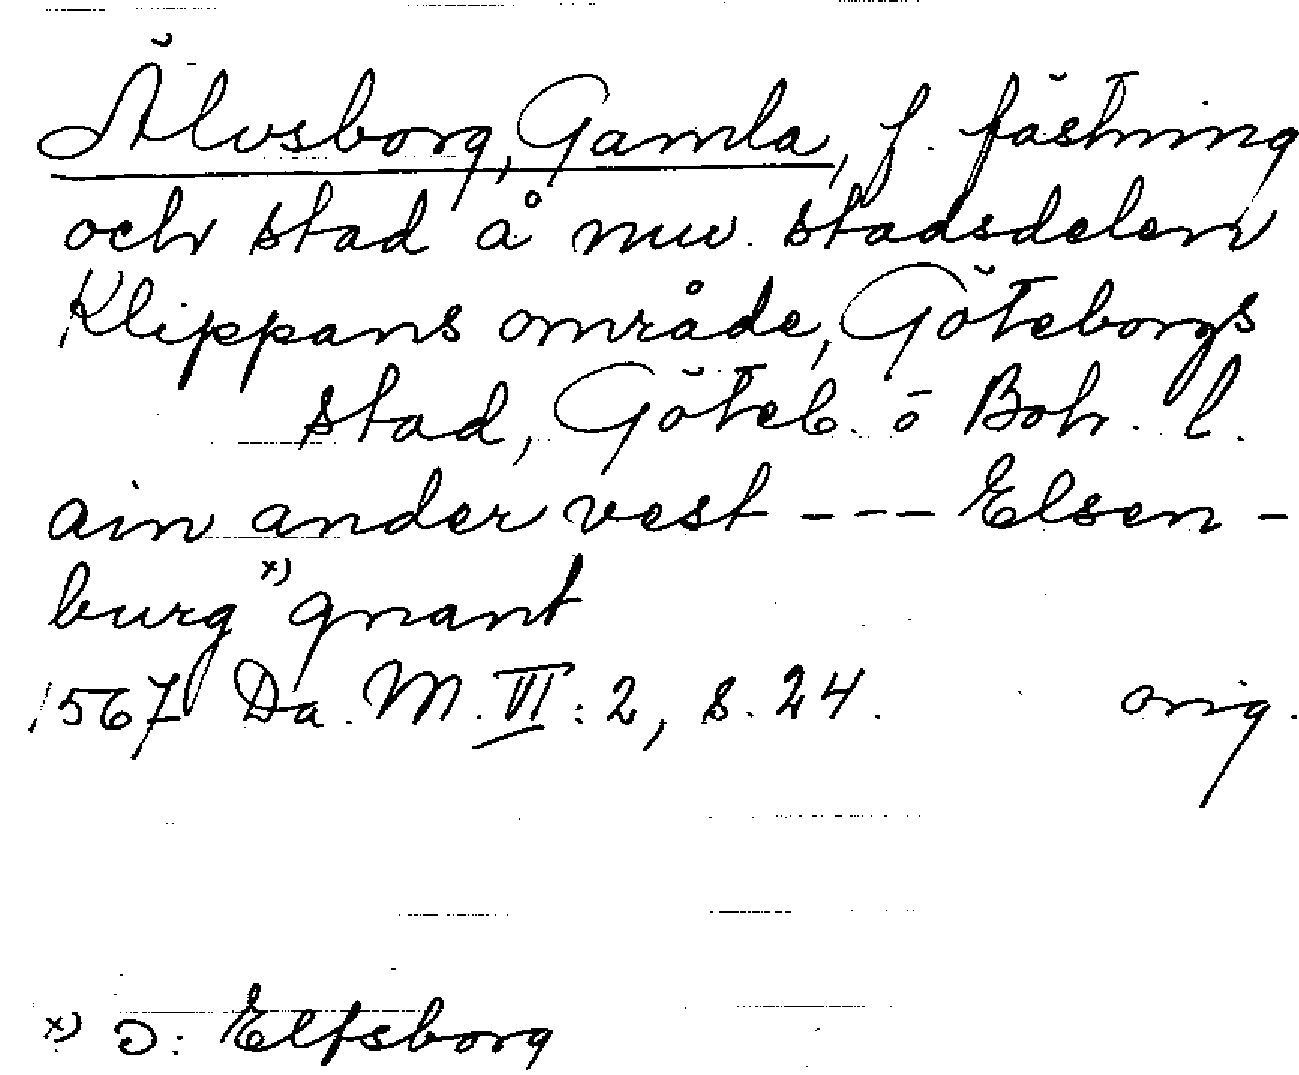 Älvsborg, Gamla, f. fästning
och stad å nuv. stadsdelen
Klippans område, Göteborgs
stad, Göteb. o Boh. l.
ain ander vest --- Elsen-
burg x) gnant
1567 Da. M. VI: 2, s. 24. orig.
x) ɔ: Elfsborg